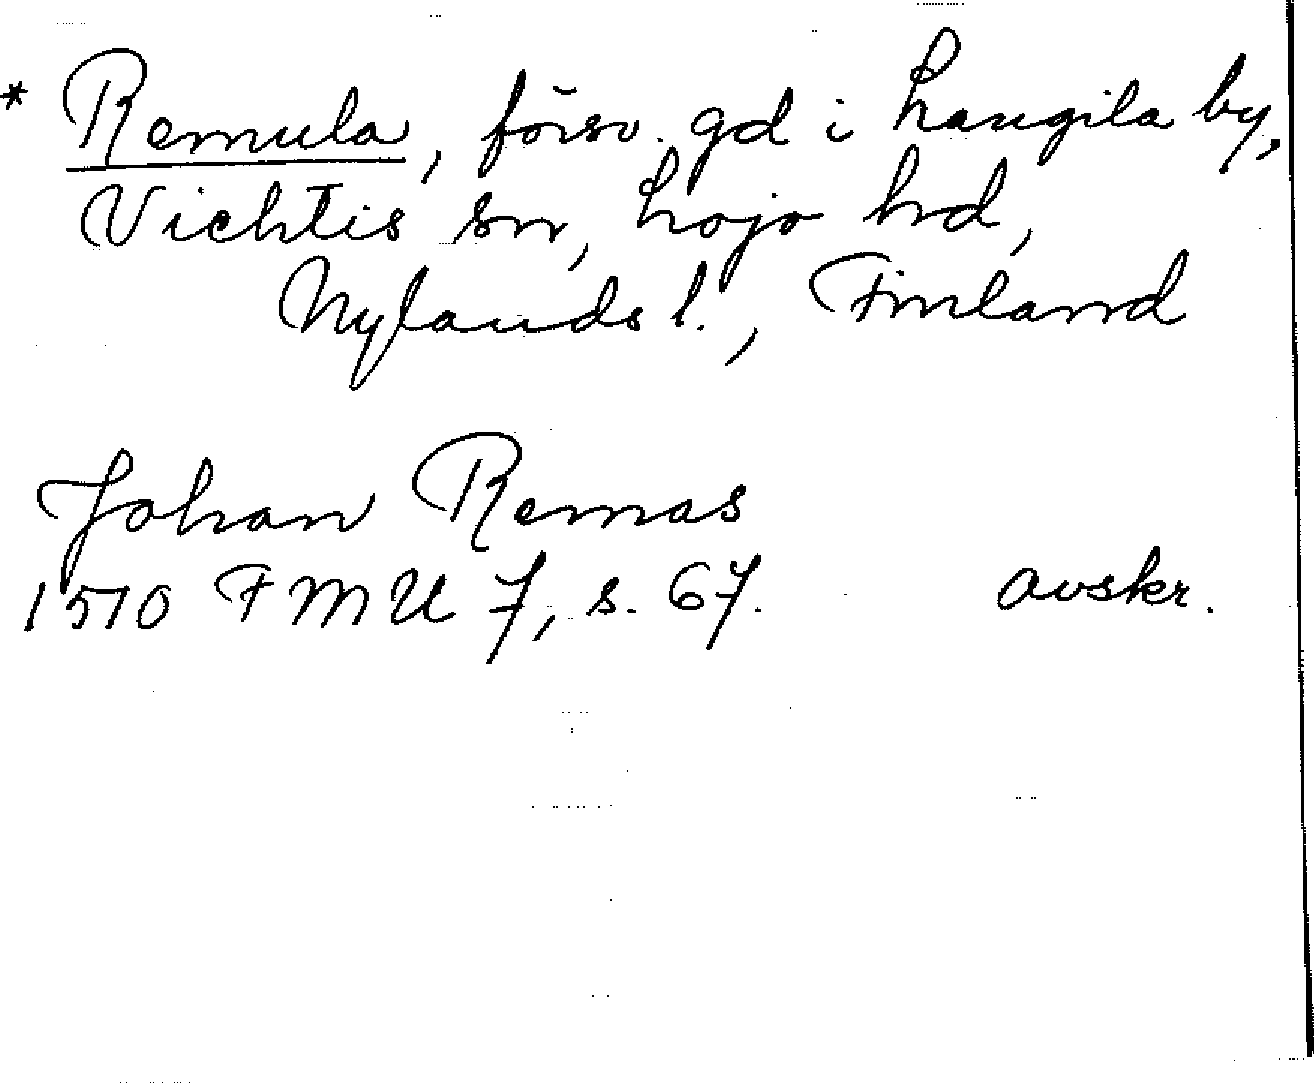 * Remula, försv. gd i Haugila by,
Vichtis sn, Lojo hd,
Nylands l., Finland
Johan Remas
1570 FMU 7, s. 67. avskr.